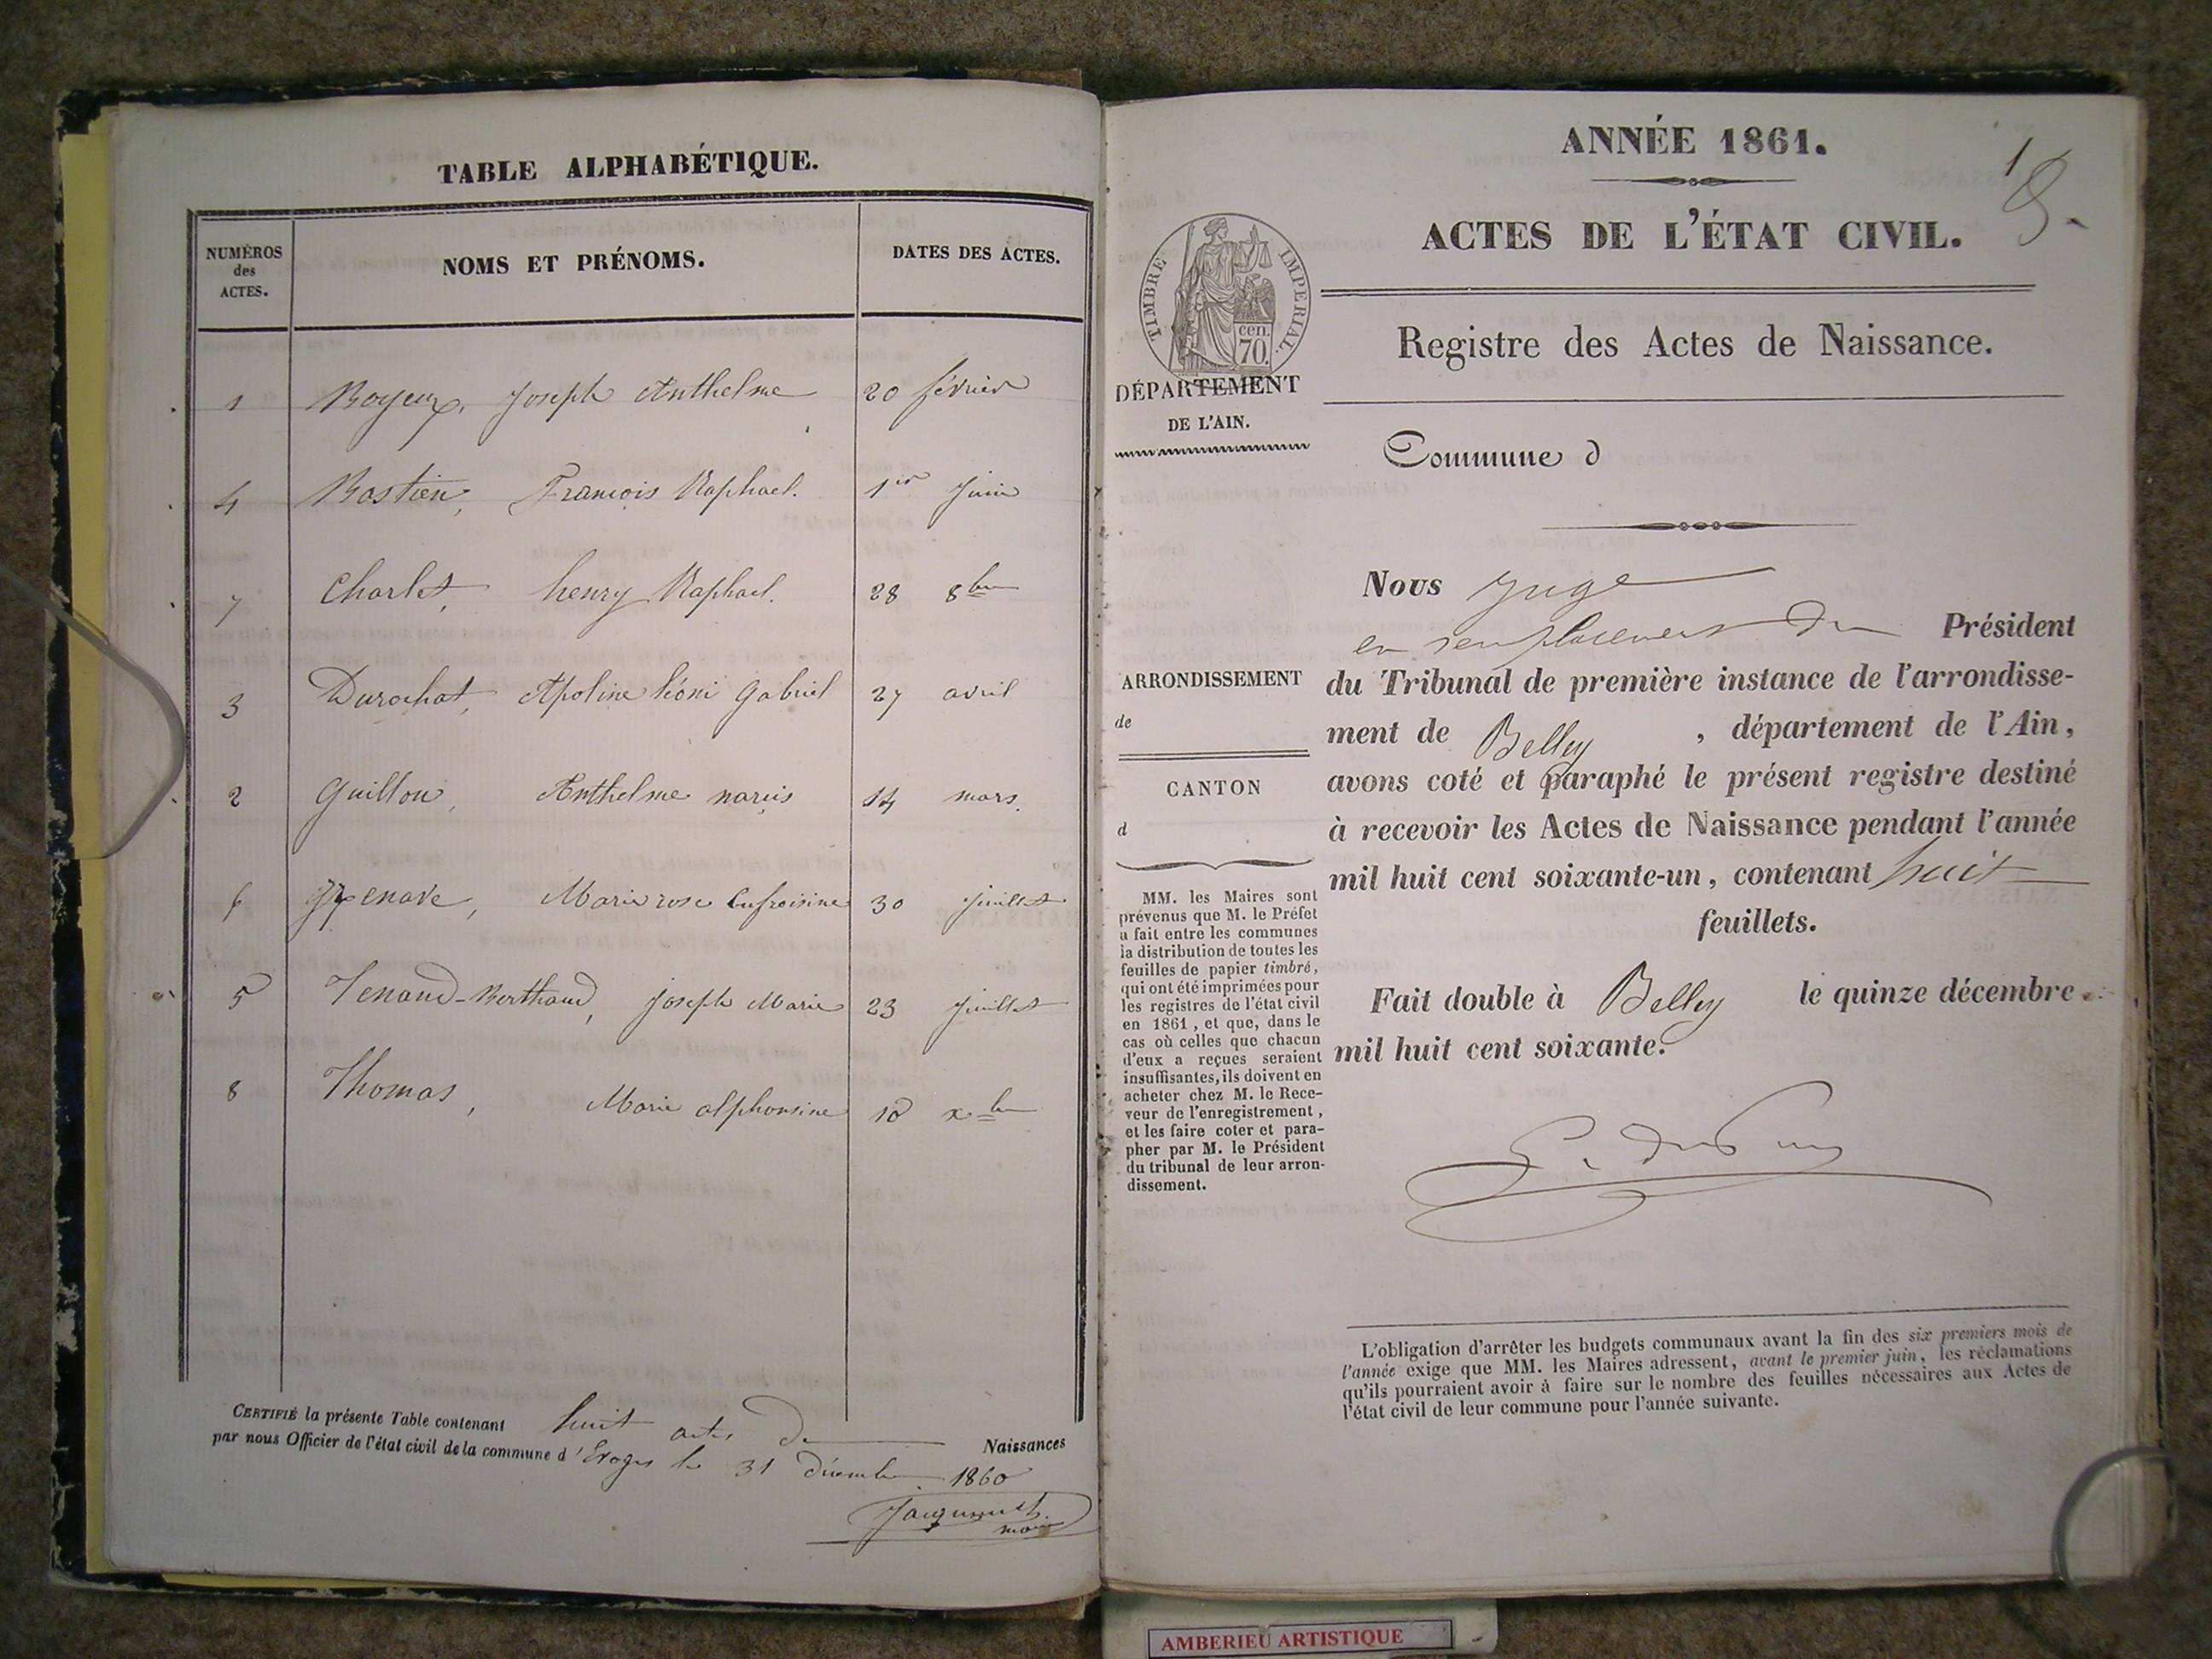 TABLE ALPHABÉTIQUE.
NUMÉROS des ACTES.
NOMS ET PRÉNOMS.
DATES DES ACTES.
1 Boyeux, Joseph Anthelme 20 février
4 Bastien, François Raphael. 1er Juin
7 Charlet, henry Raphael. 28 8bre
3 Durochat, Apoline léoni Gabriel 27 avril
2 Guillon, Anthelme narcis 14 mars.
6 Grenave, Marie rose Eufroisine 30 juillet
5 Tenand-Berthaud, joseph Marie 23 juillet
8 Thomas, Marie alphonsine 10 xbre
CERTIFIÉ la présente Table contenant huit actes de Naissances
par nous Officier de l'état civil de la commune d'Evoges le 31 décembre 1860
maire
ANNÉE 1861.
1
8
ACTES DE L'ÉTAT CIVIL.
TIMBRE IMPERIAL.
cen.
70.
DÉPARTEMENT
DE L'AIN.
Registre des Actes de Naissance.
Commune d
Nous Juge
en remplacement du Président
du Tribunal de première instance de l'arrondisse-
ment de Belley, département de l'Ain,
avons coté et paraphé le présent registre destiné
à recevoir les Actes de Naissance pendant l'année
mil huit cent soixante-un, contenant huit
feuillets.
Fait double à Belley le quinze décembre
mil huit cent soixante.
ARRONDISSEMENT
de
CANTON
d
MM. les Maires sont
prévenus que M. le Préfet
a fait entre les communes
la distribution de toutes les
feuilles de papier timbré,
qui ont été imprimées pour
les registres de l'état civil
en 1861, et que, dans le
cas où celles que chacun
d'eux a reçues seraient
insuffisantes, ils doivent en
acheter chez M. le Rece-
veur de l'enregistrement,
et les faire coter et para-
pher par M. le Président
du tribunal de leur arron-
dissement.
L'obligation d'arrêter les budgets communaux avant la fin des six premiers mois de
l'année exige que MM. les Maires adressent, avant le premier juin, les réclamations
qu'ils pourraient avoir à faire sur le nombre des feuilles nécessaires aux Actes de
l'état civil de leur commune pour l'année suivante.
AMBERIEU ARTISTIQUE